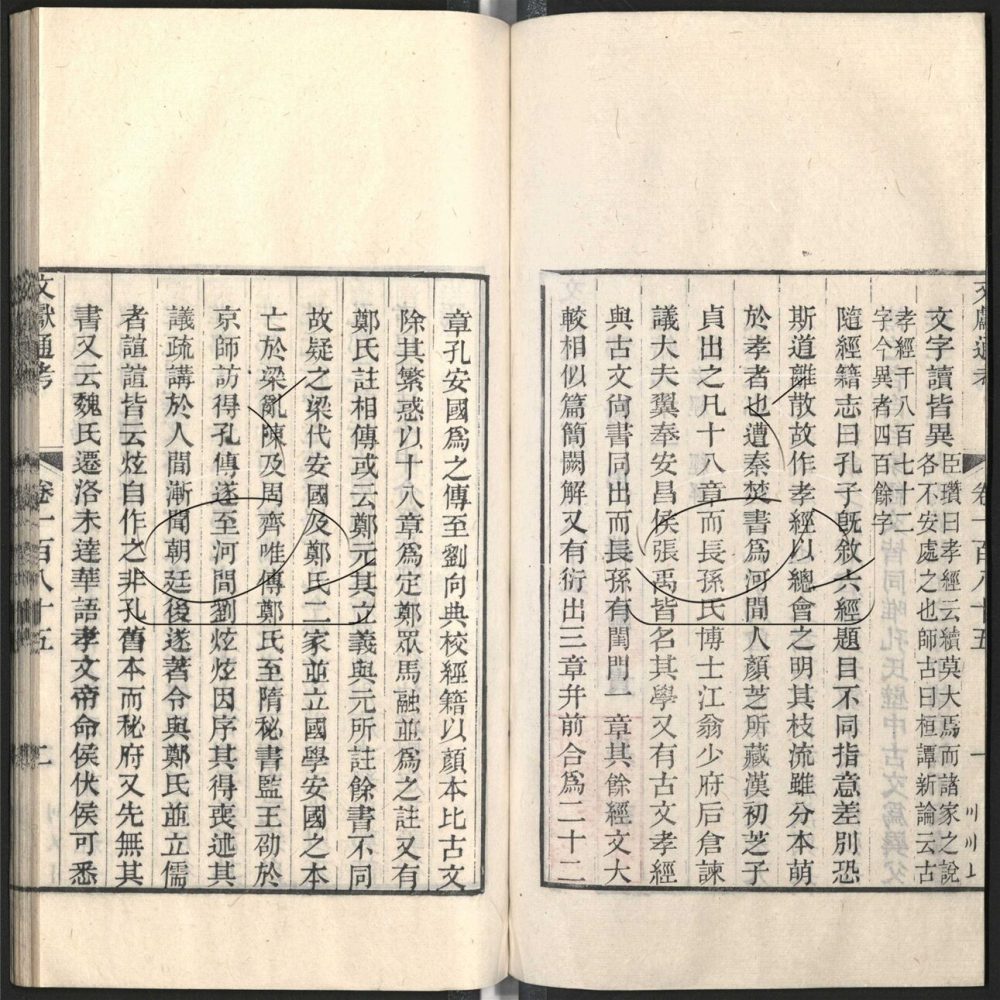 文獻通考 卷一百八十五 一
文字讀皆異
臣瓚曰孝經云續莫大焉而諸家之說
各不安處之也師古曰桓譚新論云古
孝經千八百七十二
字今異者四百餘字
隨經籍志曰孔子既敘六經題目不同指意差別恐
斯道離散故作孝經以總會之明其枝流雖分本萌
於孝者也遭秦焚書為河間人顏芝所藏漢初芝子
貞出之凡十八章而長孫氏博士江翁少府后倉諫
議大夫翼奉安昌侯張禹皆名其學又有古文孝經
與古文尚書同出而長孫有閨門一章其餘經文大
較相似篇簡闕解又有衍出三章并前合為二十二
章孔安國為之傳至劉向典校經籍以顏本比古文
除其繁惑以十八章為定鄭眾馬融並為之註又有
鄭氏註相傳或云鄭元其立義與元所註餘書不同
故疑之梁代安國及鄭氏二家並立國學安國之本
亡於梁亂陳及周齊唯傳鄭氏至隋秘書監王劭於
京師訪得孔傳遂至河間劉炫炫因序其得喪述其
議疏講於人間漸聞朝廷後遂著令與鄭氏並立儒
者諠諠皆云炫自作之非孔舊本而秘府又先無其
書又云魏氏遷洛未達華語孝文帝命侯伏侯可悉
文獻通考 卷一百八十五 二